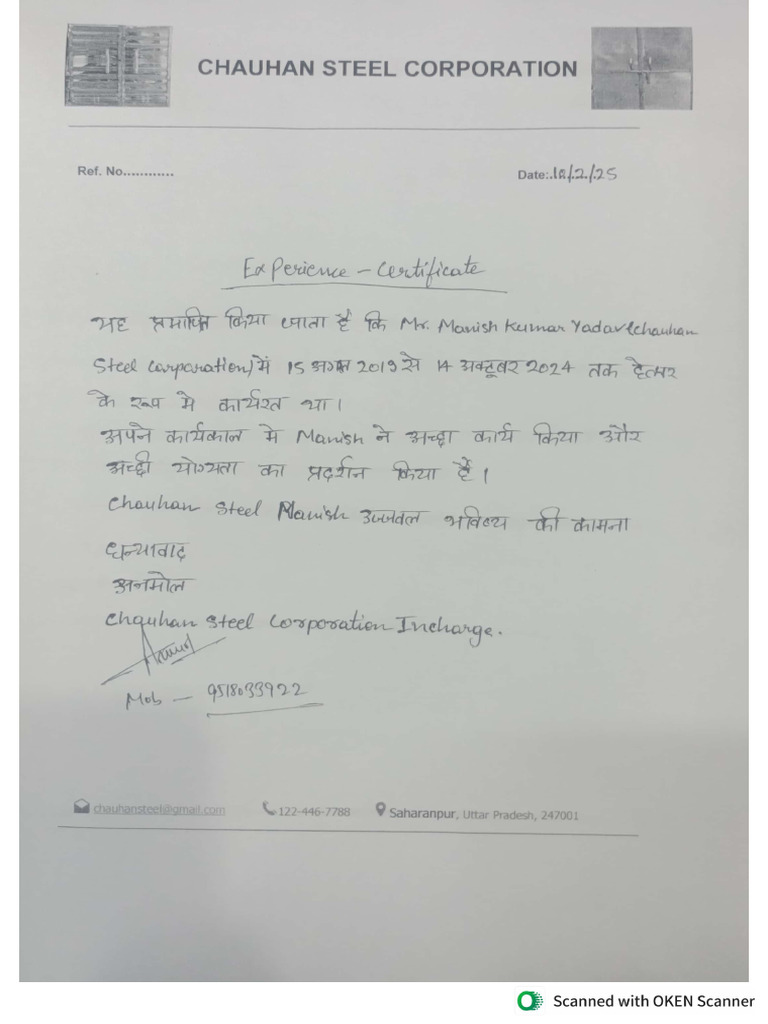 CHAUHAN STEEL CORPORATION
Ref. No............
Date:.10/.2./.25
Experience - Certificate
यह प्रमाणित किया जाता है कि Mr. Manish Kumar Yadav (Chauhan
Steel Corporation) में 15 अगस्त 2019 से 14 अक्टूबर 2024 तक हेल्पर
के रूप मे कार्यरत था।
अपने कार्यकाल मे Manish ने अच्छा कार्य किया और
अच्छी योग्यता का प्रदर्शन किया है।
Chauhan Steel Manish उज्जवल भविष्य की कामना
धन्यावाद
अनमोल
Chauhan Steel Corporation Incharge.
Anmol
Mob - 9518033922
chauhansteel@gmail.com 122-446-7788 Saharanpur, Uttar Pradesh, 247001
Scanned with OKEN Scanner